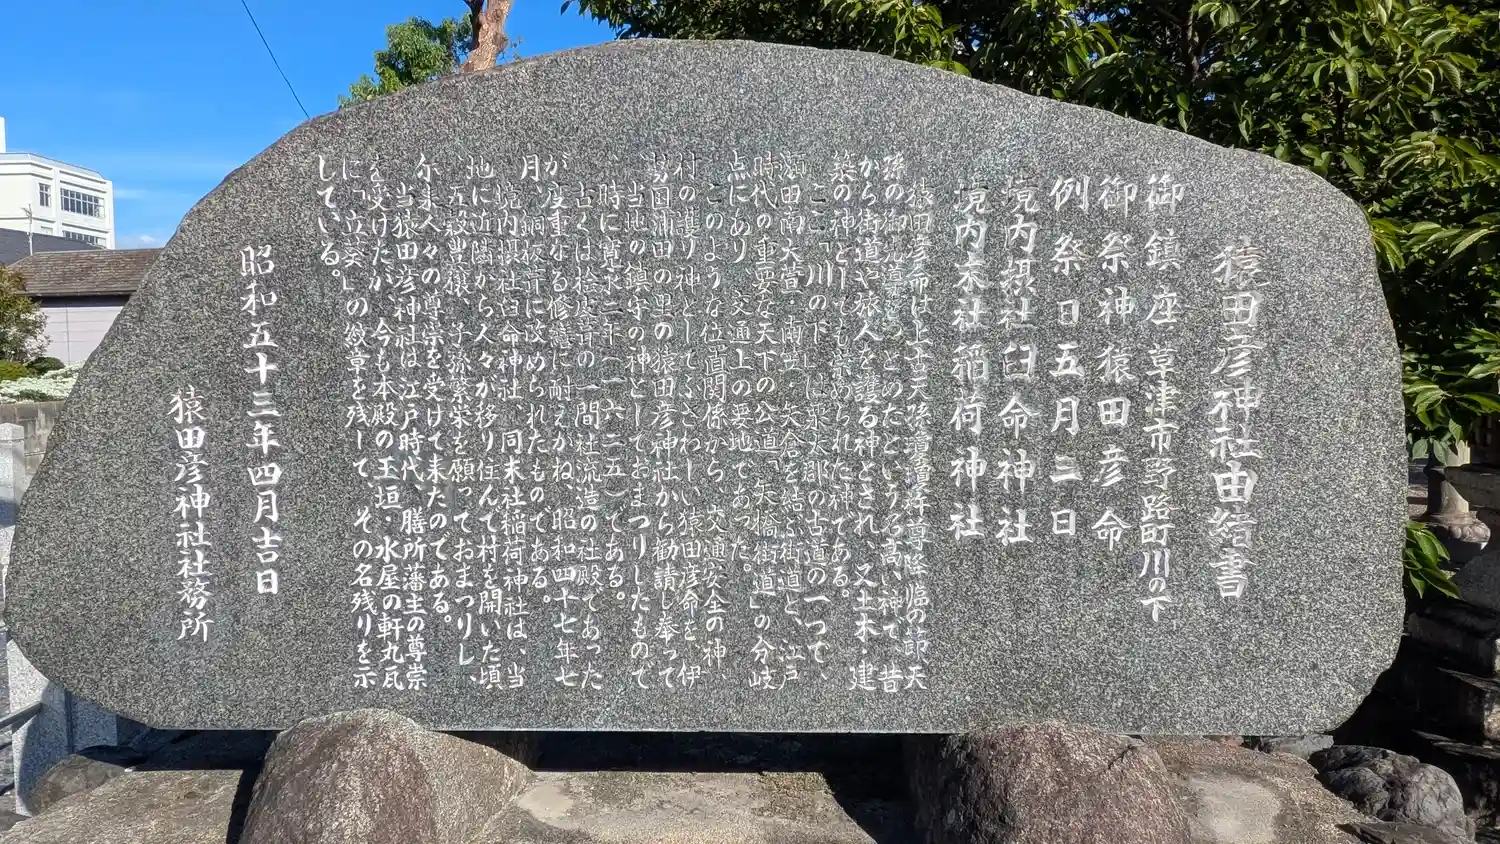 猿田彦神社由緒書
御鎮座 草津市野路町川の下
御祭神 猿田彦命
例祭日 五月三日
境内摂社 臼命神社
境内末社 稲荷神社
猿田彦命は上古天孫瓊瓊杵尊降臨の節、天
孫の御先導をつとめたという名高い神で、昔
から街道や旅人を護る神とされ、又土木・建
築の神としても崇められた神である。
ここ「川の下」は栗太郡の古道の一つで、
瀬田南大萱・南笠・矢倉を結ぶ街道と、江戸
時代の重要な天下の公道「矢橋街道」の分岐
点にあり、交通上の要地であった。
このような位置関係から、交通安全の神、
村の護り神としてふさわしい猿田彦命を、伊
勢国浦田の里の猿田彦神社から勧請し奉って
、当地の鎮守の神としておまつりしたもので
、時に寛永二年(一六二五)である。
古くは桧皮葺の一間社流造の社殿であった
が度重なる修葺に耐えかね、昭和四十七年七
月、銅板葺に改められたものである。
境内摂社臼命神社、同末社稲荷神社は、当
地に近隣から人々が移り住んで村を開いた頃
、五穀豊穣、子孫繁栄を願っておまつりし、
尓来人々の尊崇を受けて来たのである。
当猿田彦神社は江戸時代、膳所藩主の尊崇
を受けたが、今も本殿の玉垣・水屋の軒丸瓦
に「立葵」の紋章を残して、その名残りを示
している。
昭和五十三年四月吉日
猿田彦神社社務所